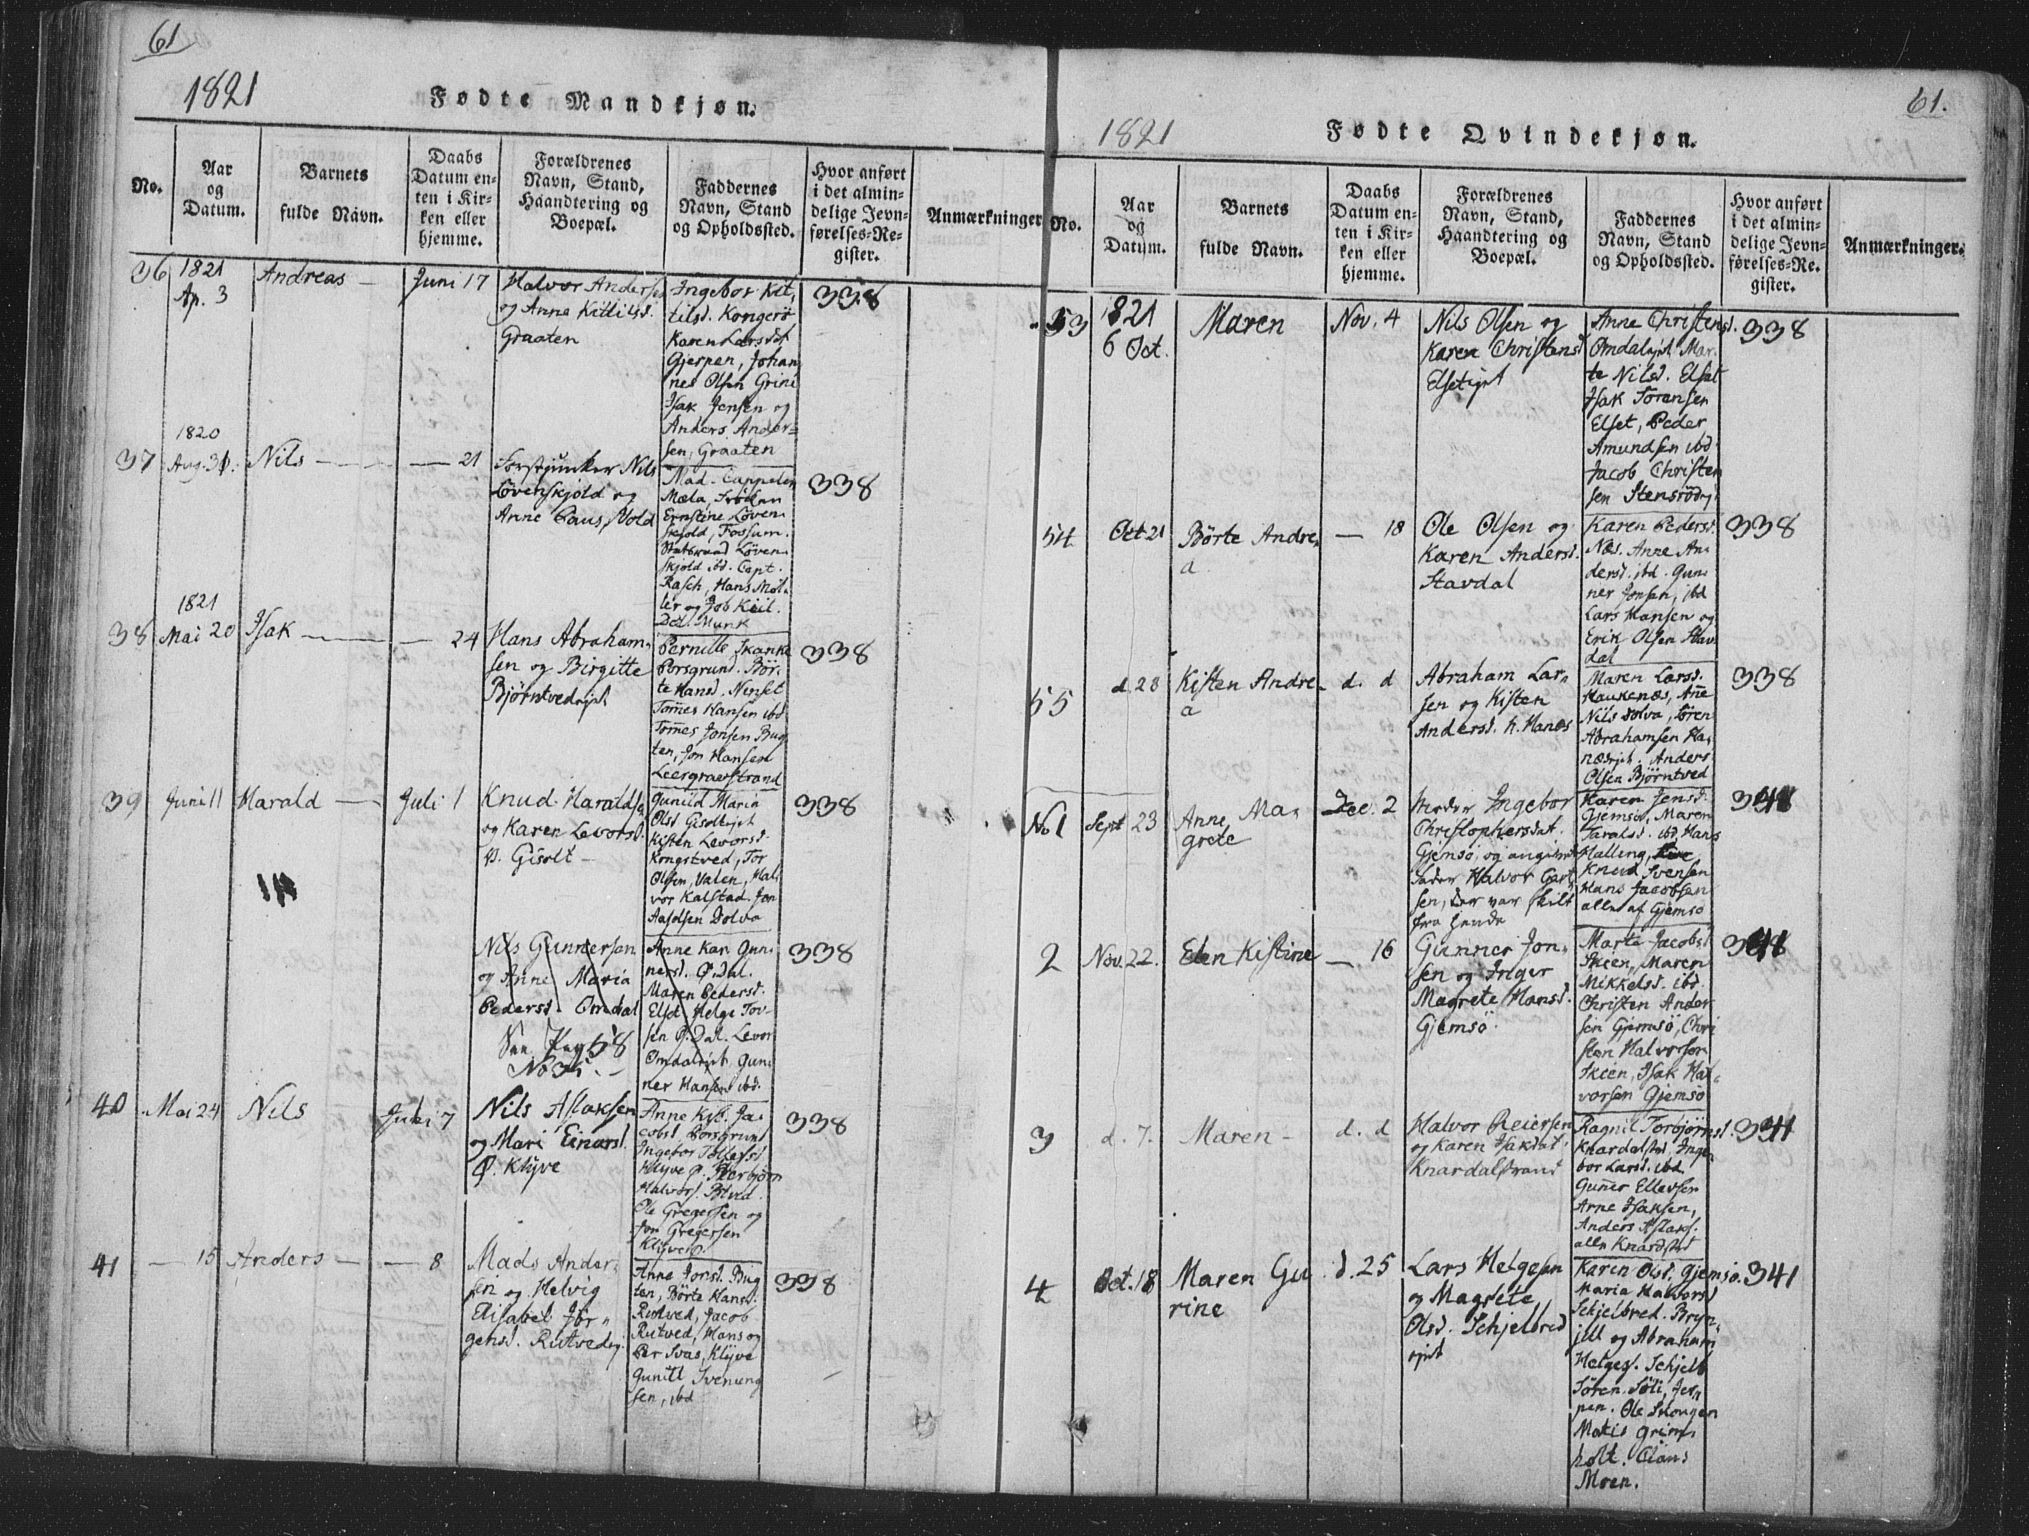 61
1821
Fødte Mandkjøn.
No.
Aar
og
Datum.
Barnets
fulde Navn.
Daabs
Datum en-
ten i Kir-
ken eller
hjemme.
Forældrenes
Navn, Stand,
Haandtering og
Boepæl.
Faddernes
Navn, Stand
og Opholdssted.
Hvor anført
i det almin-
delige Jevn-
førelses-Re-
gister.
Anmærkninger
36
1821
Ap. 3
Andreas
Juni 17
Halvor Anders
og Anne Kittilsd.
Graaten
Ingebor Kit
tilsd. Kongerö
Karen Larsdt
Gjerpen, Johan
nes Olsen Grini
Isak Jensen og
Anders Ander-
sen, Graaten
338
37
1820
Aug. 31.
Nils
21
Forstjunker Nils
Lövenskjold og
Anne Paus, Wold
Mad. Cappelen
Mæla, Fröken
Ernstine Löven
skjold, Fossum.
Statsraad Löven
skjold ibd. Capt.
Rasch, Hans Möl-
ler og Job Kiil.
Ded. Munk
338
38
1821
Mai 20
Isak
24
Hans Abraham
sen og Birgitte
Björntvedejet
Pernille Skanke
Porsgrund. Bör-
te Hansd. Nenset
Tomes Hansen ibd
Tomes Jonsen Bug
ten, Jon Hansen
Leergravstrand
338
39
Juni 11
Harald
Juli 1
Knud Haralds
og Karen Levorsd.
Ø. Gisolt
Gunild Maria
Olsd Gisoltejet
Kisten Levorsd.
Kongstved, Tor
Olsen, Valen, Hal
vor Kalstad. Jon
Aasolsen Dolva
338
Nils Gunnersen
og Anne Maria
Pedersd. Omdal
See Pag 58
No 35.
Anne Kar. Gun
nersd. Ø. Dal.
Maren Pedersd.
Elset Helge Tov
sen Ø. Dal. Levor
Omdalejet. Gun
ner Hansen ibd.
338
40
Mai 24
Nils
Juli 7
Nils Aslaksen
og Mari Einarsd.
Ø. Klyve
Anne Kib. Ja
cobsd Porsgrund
Ingebor Tollefsd
Klyve Ø. Torbjörn
Halvors. Btved.
Ole Gregersen og
Jon Gregersen
Klyve Ø
338
41
15
Anders
8
Mads Ander
sen og Helvig
Elisabet Jör-
gensd. Rutvedej.
Anne Jonsd. Bug
ten, Börte Hansd.
Rutved, Jacob
Rutved, Hans og
Per Svas, Klyve
Gunill Sveneng
sen, ibd
338
61.
1821
Fødte Qvindekjøn.
No.
Aar
og
Datum.
Barnets
fulde Navn.
Daabs
Datum en-
ten i Kir-
ken eller
hjemme.
Forældrenes
Navn, Stand,
Haandtering og
Boepæl.
Faddernes
Navn, Stand
og Opholdssted.
Hvor anført
i det almin-
delige Jevn-
førelses-Re-
gister.
Anmærkninger.
53
1821
6 Oct.
Maren
Nov. 4
Nils Olsen og
Karen Christensd
Elsetejet
Anne Christensd.
Omdalejet Mar
te Nilsd. Elset
Isak Sörensen
Elset, Peder
Amundsen ibd
Jacob Christen
sen Stensrödej.
338
54
Oct 21
Börte Andre
a
18
Ole Olsen og
Karen Andersd.
Stavdal
Karen Pedersd.
Næs. Anne An
dersd. ibd. Gun
ner Jonsen, ibd
Lars Hansen og
Erik Olsen Stav
dal
338
55
d. 28
Kisten Andre
a
d. d
Abraham Lar
sen og Kisten
Andersd. N. Hanæs
Maren Larsd.
Haukenæs, Ane
Nils Dolva, Sören
Abrahamsen Ha
næsejet. Anders
Olsen Björntved
338
No 1
Sept 23
Anne Ma
grete
Dec. 2
Moder Ingebor
Christophersdat.
Gjemsö, og angivet
Fader Halvor Carl
sen, der var skilt
fra hende
Karen Jensd.
Gjemsö, Maren
Taralsd. ibd, Hans
Halling,
Knud Svensen
Hans Jacobsen
alle af Gjemsö
341
2
Nov. 22.
Elen Kistine
16
Gunner Jon
sen og Inger
Magrete Hansd.
Gjemsö
Marte Jacobsd
Skien, Maren
Mikkelsd. ibd.
Christen Ander
sen Gjemsö, Chri
sten Halvorsen
Skien, Isak Hal
vorsen Gjemsö
341
3
d. 7.
Maren
d. d
Halvor Reiersen
og Karen Isaksdt.
Knardalstrand
Ragnil Torbjörnsd.
Knardalstrd. Inge
bor Larsd. ibd
Guner Ellevsen
Arne Isaksen,
Anders Aslaks.
alle Knardstrd
341
4
Oct. 18
Maren Gu
rine
d. 25
Lars Helgesen
og Magrete
Olsd. Schjelbred
ejet
Karen Olsd. Gjemsö.
Maria Halvorsd
Schjelbred. Bryn
jill og Abraham
Helges. Schjelb
Sören Söli, Jer
pen. Ole Skougen
Matis Grims
holt. Claus
Moen.
341